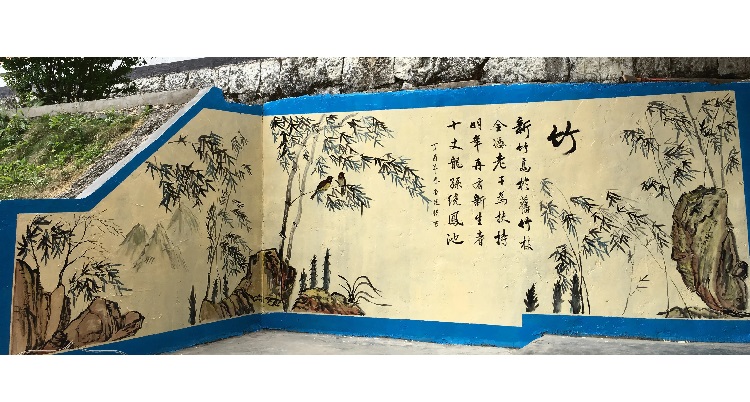 竹
新竹高於舊竹枝
全憑老干為扶持
明年再有新生者
十丈龍孫繞鳳池
丁酉